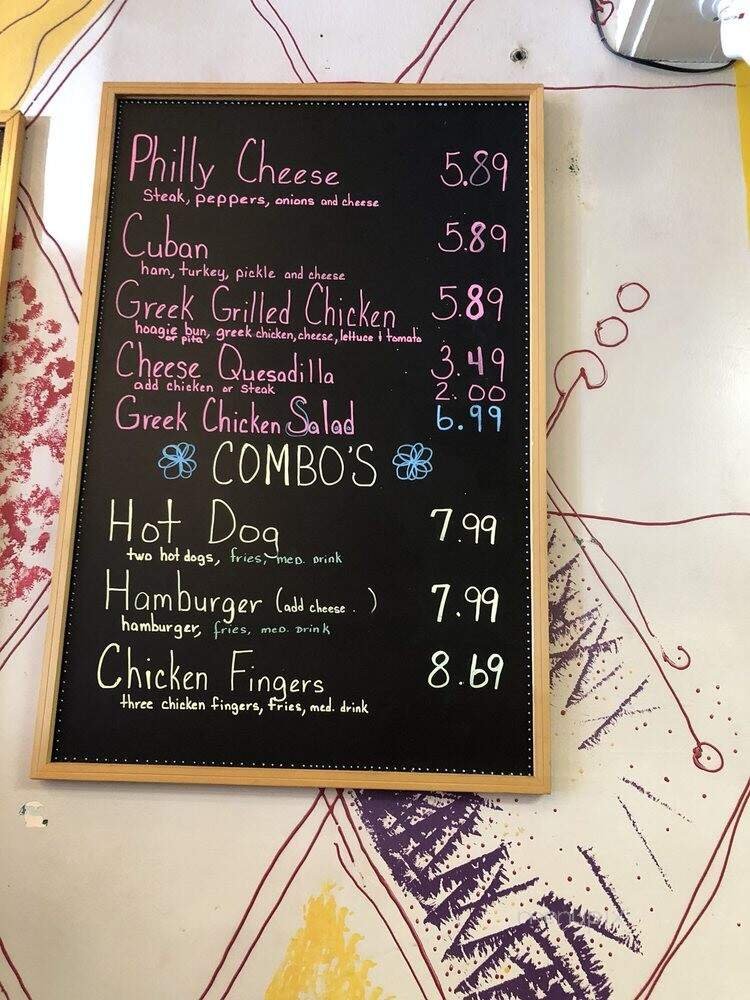 Philly Cheese 5.89
Steak, peppers, onions and cheese
Cuban 5.89
ham, turkey, pickle and cheese
Greek Grilled Chicken 5.89
hoagie bun, greek chicken, cheese, lettuce & tomato
or pita
Cheese Quesadilla 3.49
add chicken or steak 2.00
Greek Chicken Salad 6.99
COMBO'S
Hot Dog 7.99
two hot dogs, fries, med. drink
Hamburger (add cheese . ) 7.99
hamburger, fries, med. drink
Chicken Fingers 8.69
three chicken fingers, fries, med. drink